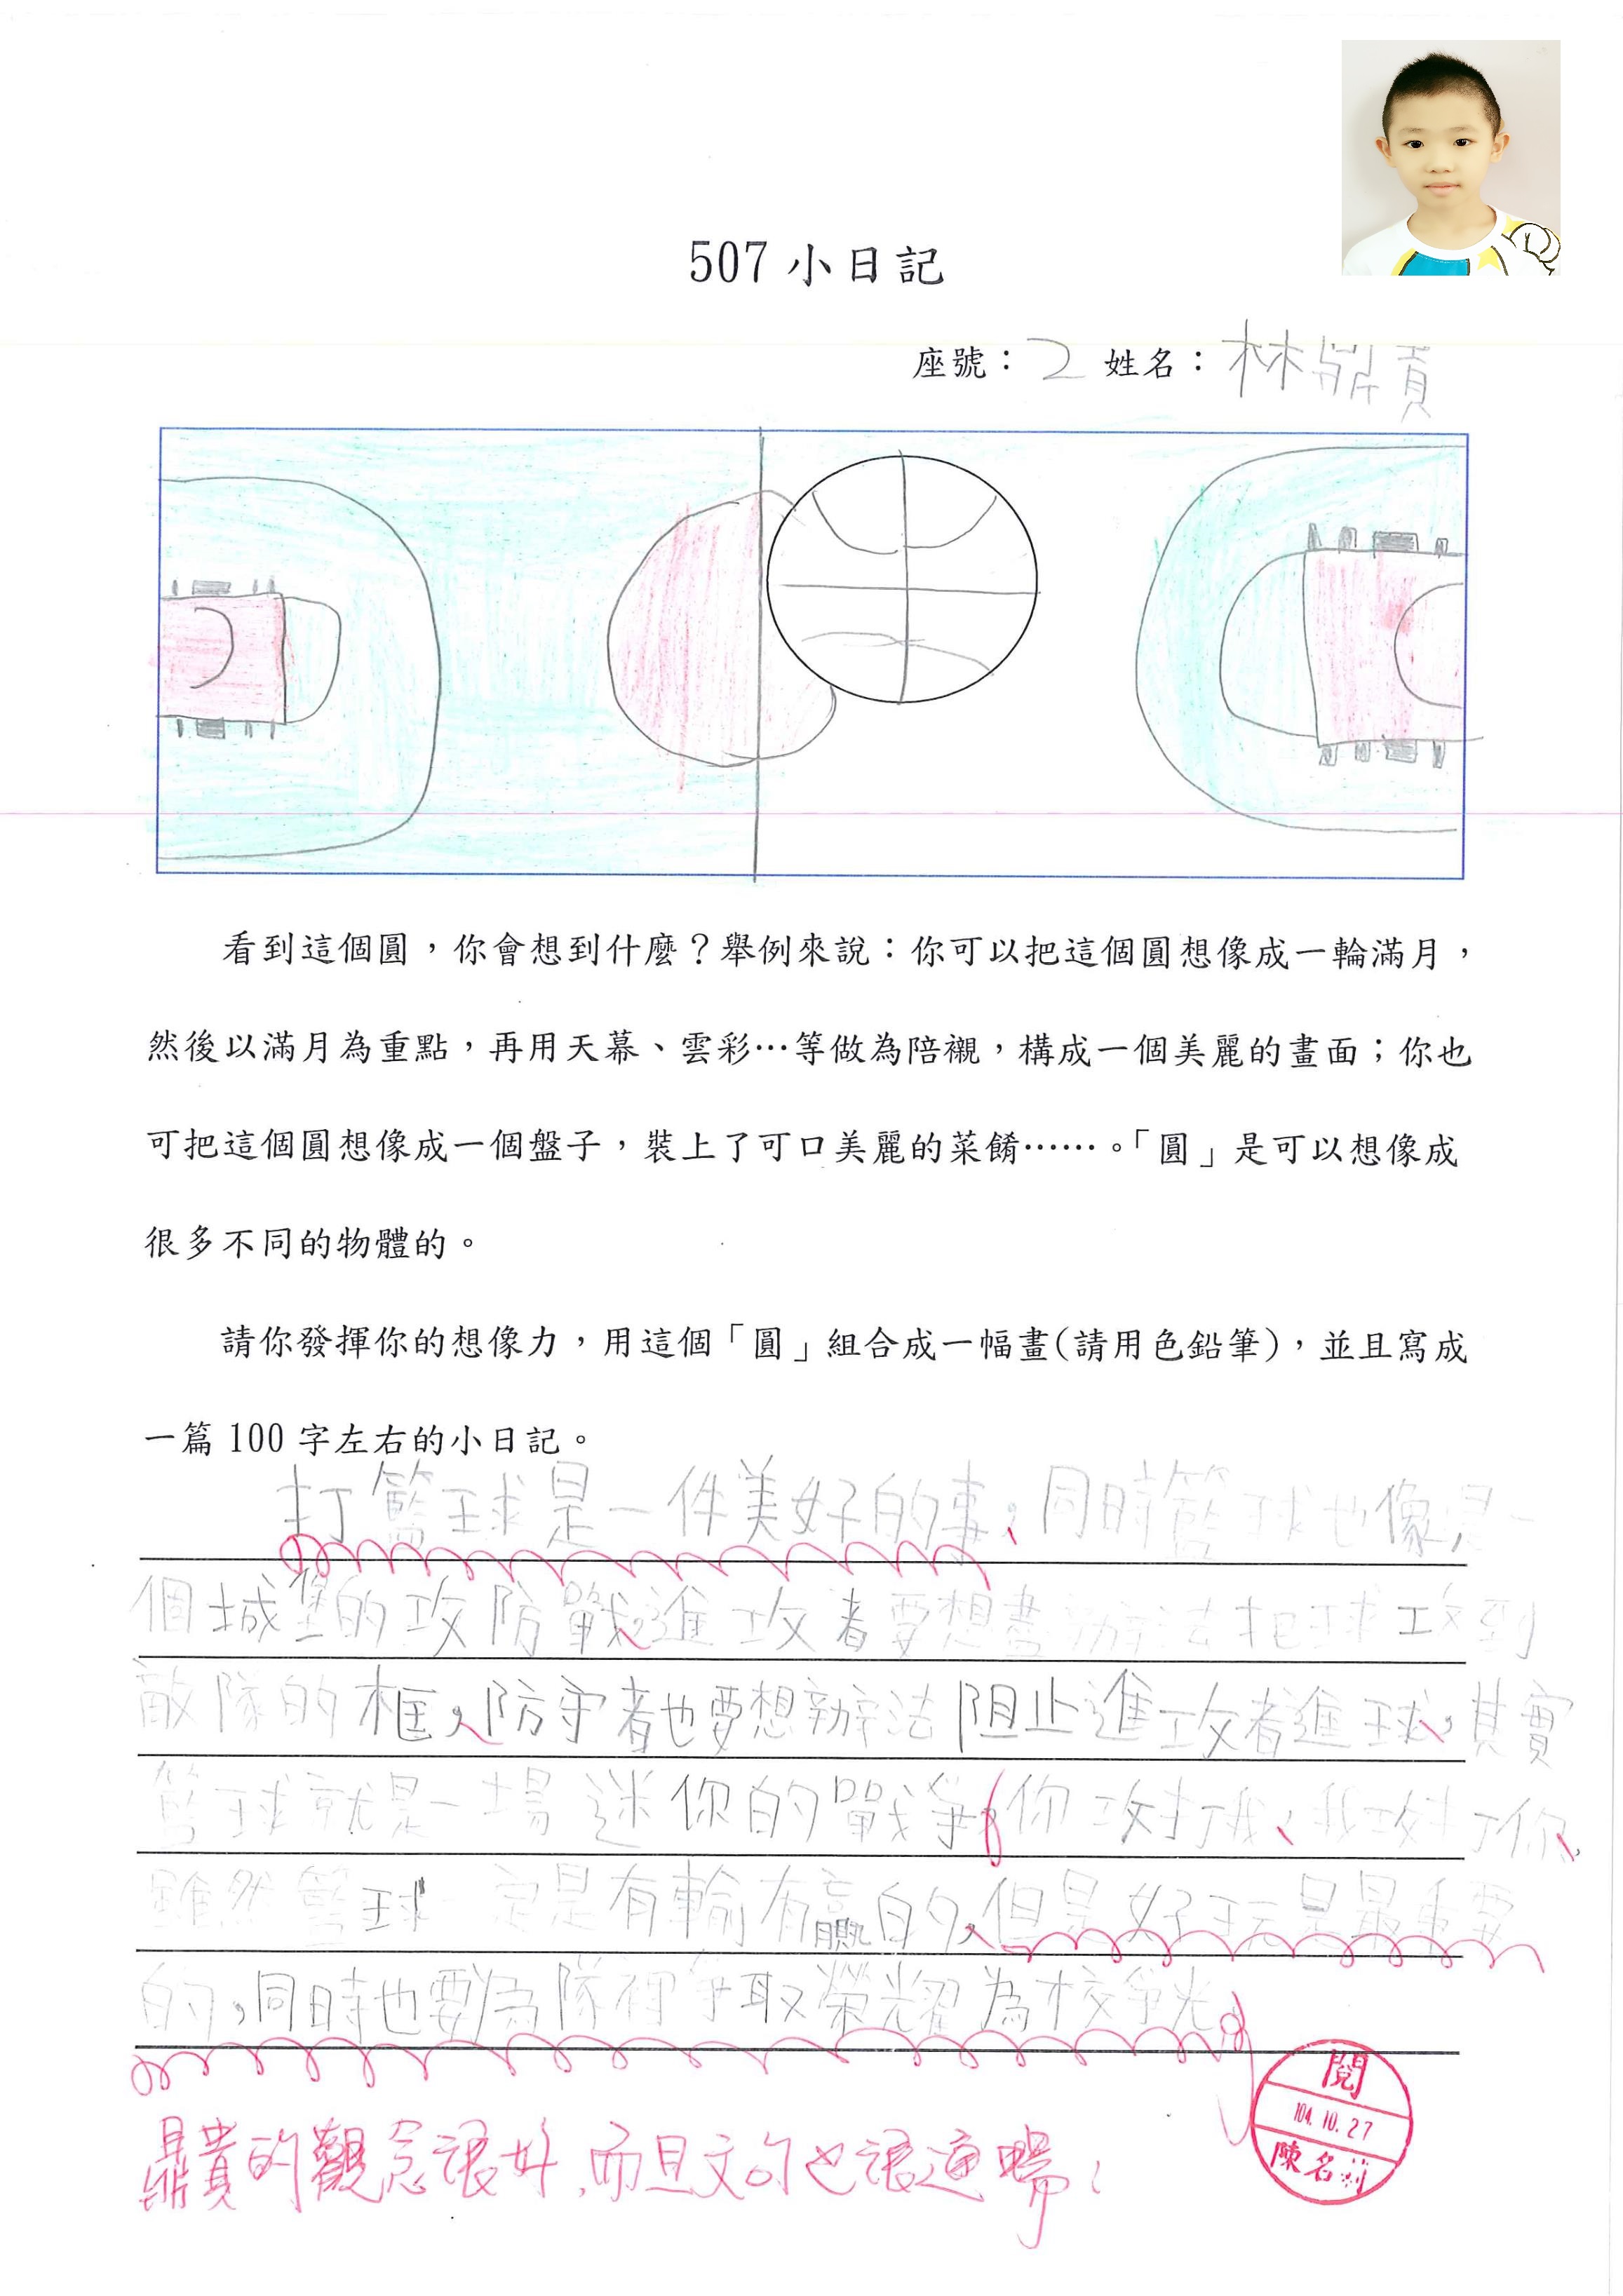 507 小日記
座號：2 姓名：林鼎貴
看到這個圓，你會想到什麼？舉例來說：你可以把這個圓想像成一輪滿月，
然後以滿月為重點，再用天幕、雲彩…等做為陪襯，構成一個美麗的畫面；你也
可把這個圓想像成一個盤子，裝上了可口美麗的菜餚……。「圓」是可以想像成
很多不同的物體的。
請你發揮你的想像力，用這個「圓」組合成一幅畫(請用色鉛筆)，並且寫成
一篇 100 字左右的小日記。
打籃球是一件美好的事，同時籃球也像是一
個城堡的攻防戰，進攻者要想盡辦法把球攻到
敵隊的框，防守者也要想辦法阻止進攻者進球，其實
籃球就是一場迷你的戰爭，你攻打我，我攻打你，
雖然籃球一定是有輸有贏的，但是好玩是最重要
的，同時也要為隊裡爭取榮耀為校爭光。
鼎貴的觀念很好，而且文句也很通暢！
閱
104.10.27
陳名